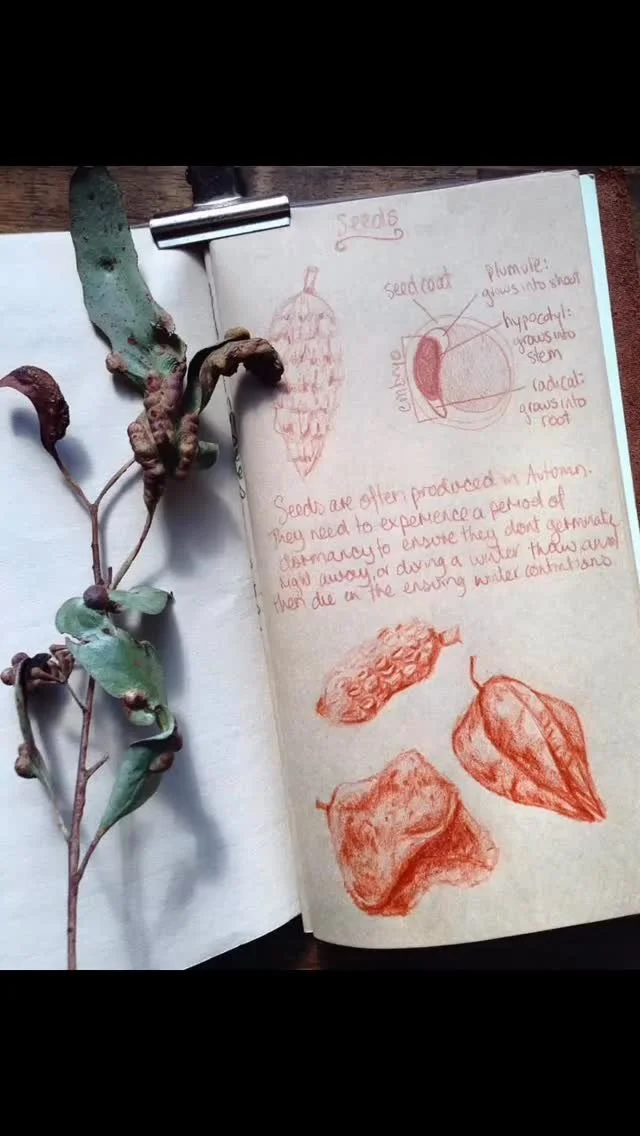 Seeds
seed coat
plumule:
grows into shoot
hypocotyl:
grows into
stem
embryo
radical:
grows into
root
Seeds are often produced in Autumn.
They need to experience a period of
dormancy to ensure they dont germinate
right away, or during a winter thaw, and
then die in the ensuing winter